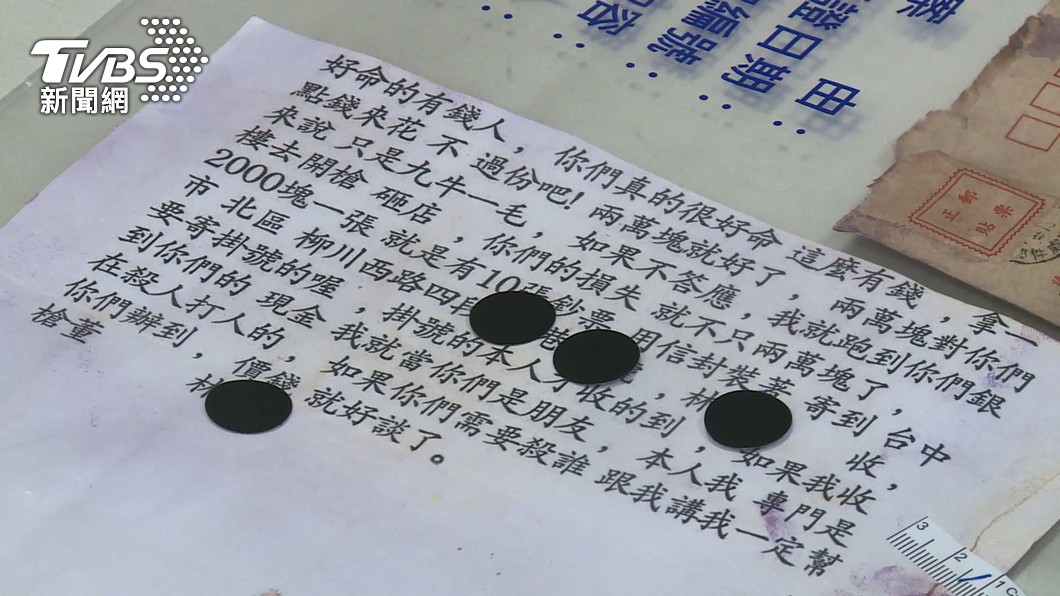 TVBS
新聞網
案 由：
證日期：
編號：
好命的有錢人，你們真的很好命 這麼有錢，拿
點錢來花 不 過份吧! 兩萬塊就好了，兩萬塊對你們
來說 只是九牛一毛，如果不答應，我就跑到你們銀
樓去開槍 砸店，你們的損失 就不只兩萬塊了，
2000塊一張 就是有10張鈔票 用信封裝著 寄到 台中
市 北區 柳川西路四段 收，
要寄掛號的喔，掛號的本人才收的到，如果我收
到你們的 現金，我就當你們是朋友，本人我 專門是
在殺人打人的，如果你們需要殺誰 跟我講我一定幫
你們辦到，價錢 就好談了。
槍董 林
3 2 1